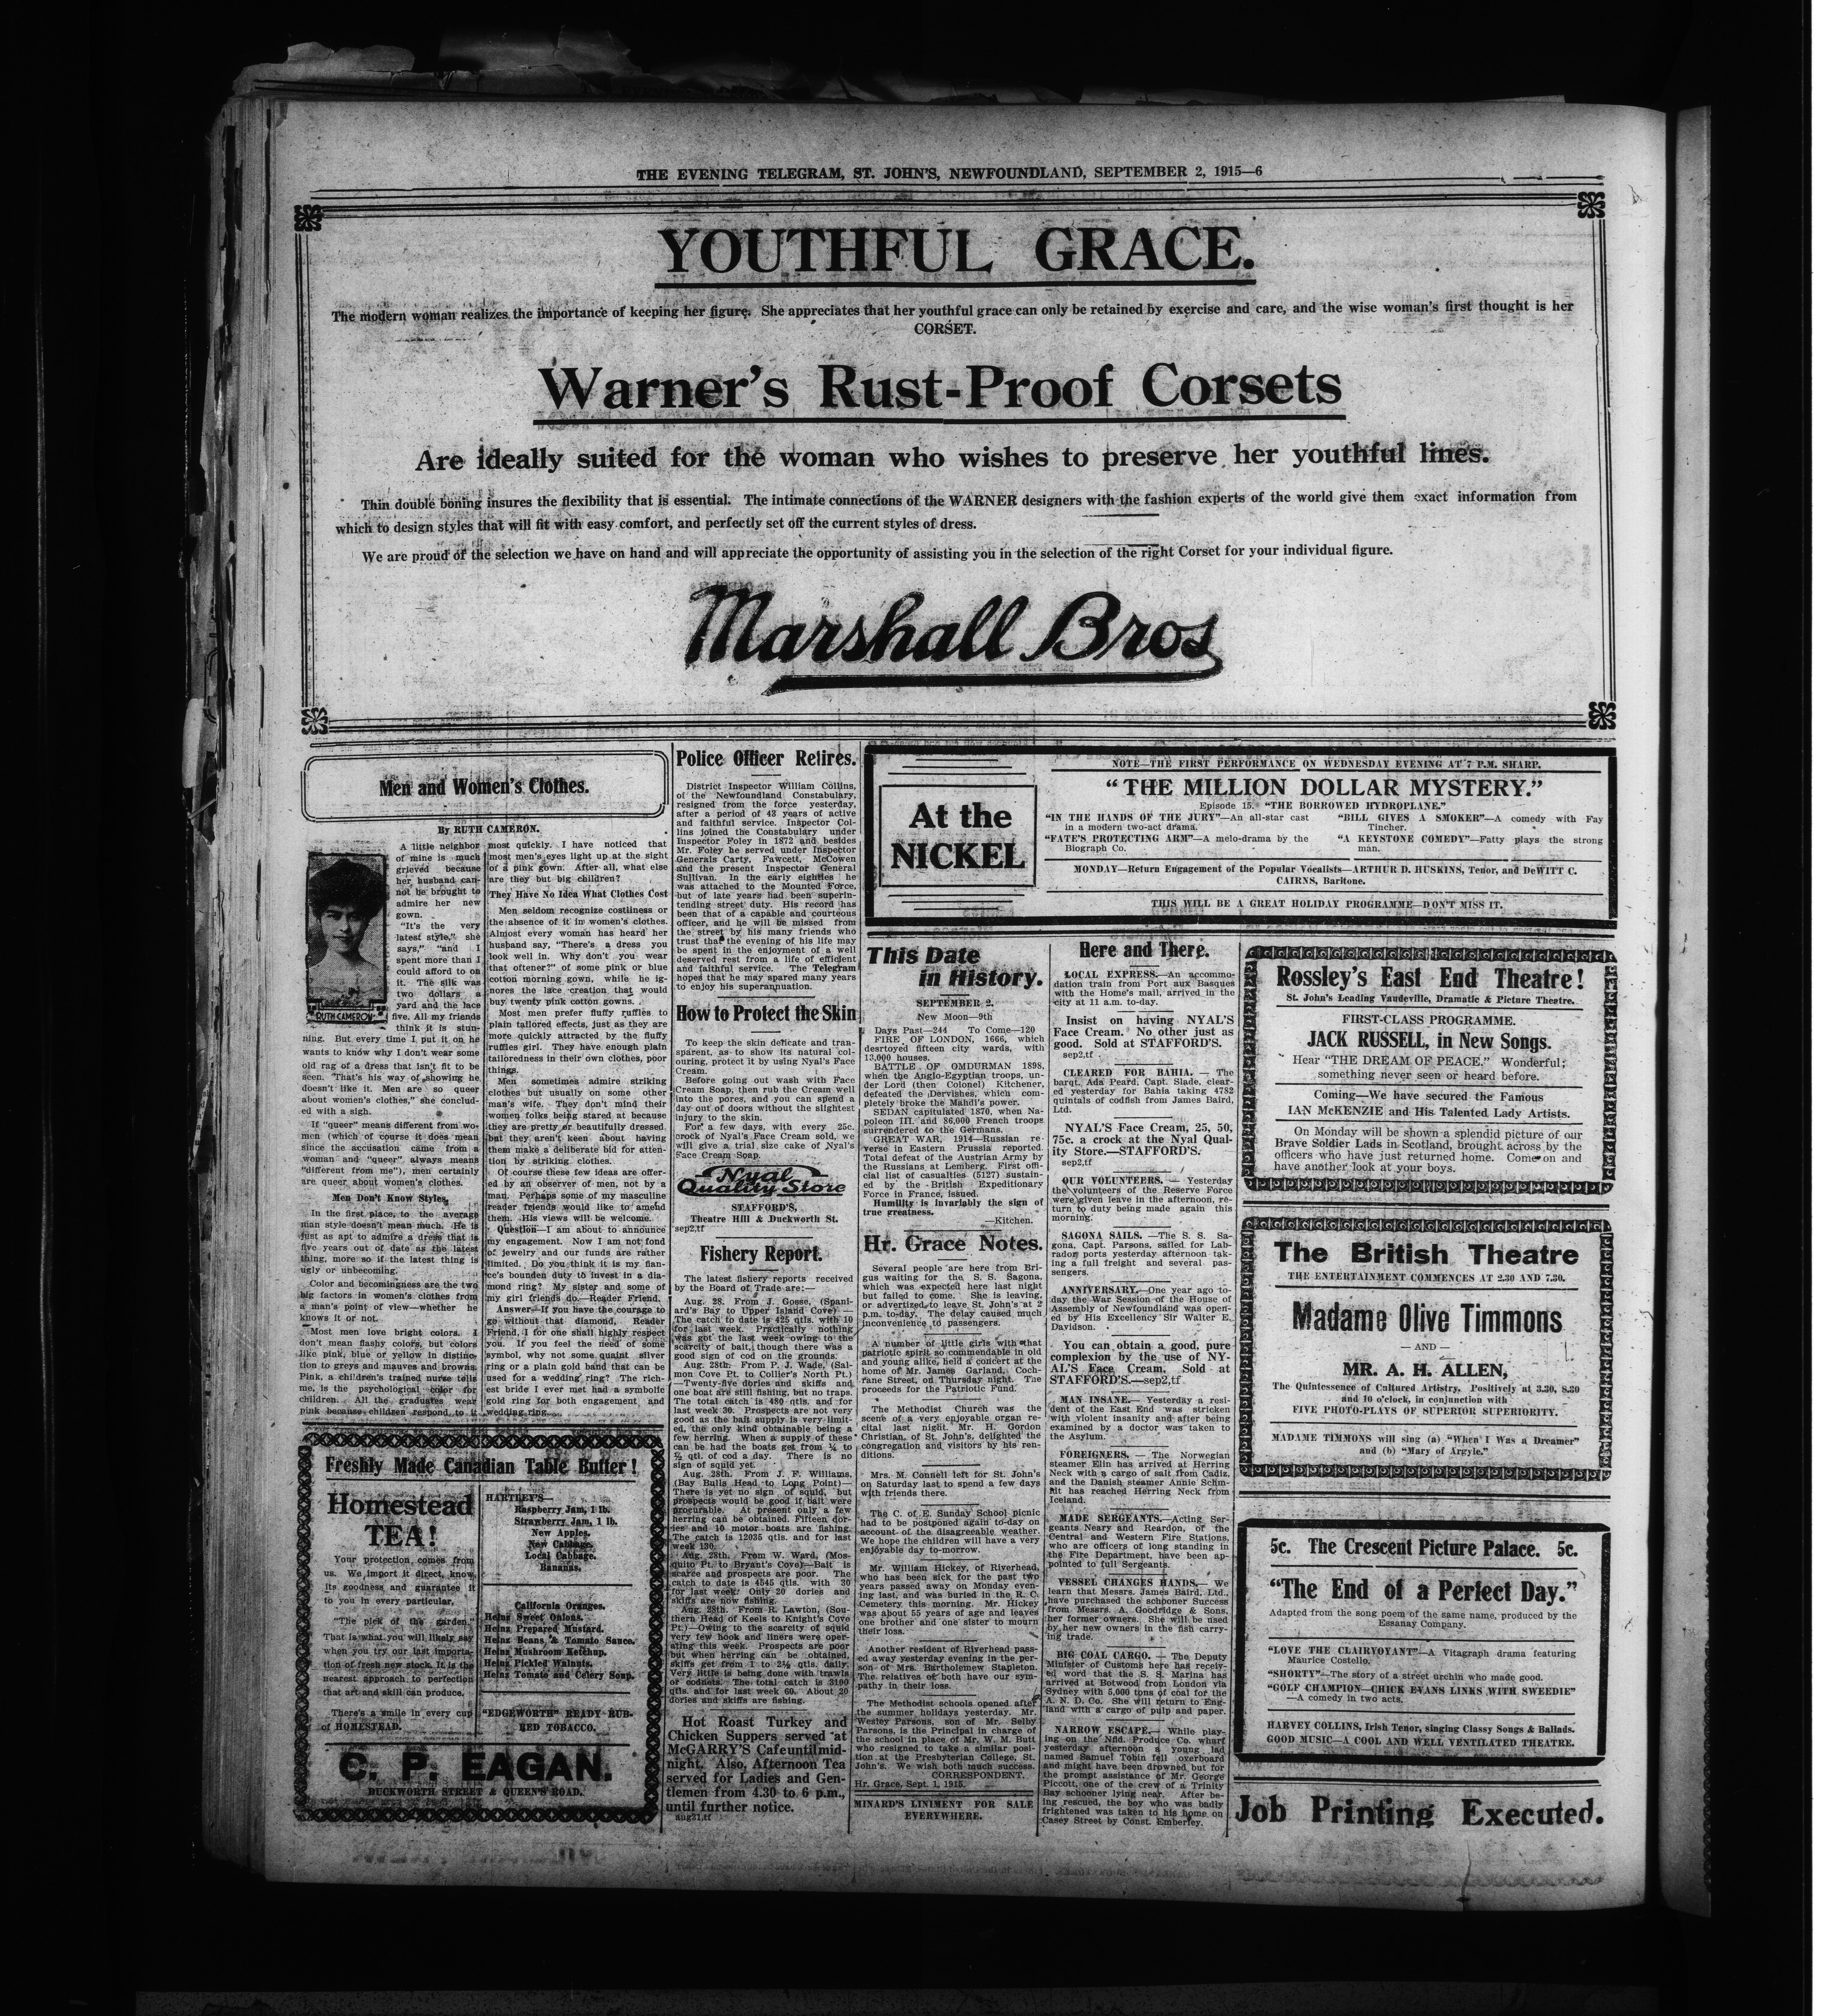 THE EVENING TELEGRAM, ST. JOHN'S, NEWFOUNDLAND, SEPTEMBER 2, 1915—6
YOUTHFUL GRACE.
The modern woman realizes the importance of keeping her figure. She appreciates that her youthful grace can only be retained by exercise and care, and the wise woman's first thought is her
CORSET.
Warner's Rust-Proof Corsets
Are ideally suited for the woman who wishes to preserve her youthful lines.
Thin double boning insures the flexibility that is essential. The intimate connections of the WARNER designers with the fashion experts of the world give them exact information from
which to design styles that will fit with easy comfort, and perfectly set off the current styles of dress.
We are proud of the selection we have on hand and will appreciate the opportunity of assisting you in the selection of the right Corset for your individual figure.
Marshall Bros
Men and Women's Clothes.
By RUTH CAMERON.
RUTH CAMERON
A little neighbor
of mine is much
grieved because
her husband can-
not be brought to
admire her new
gown.
"It's the very
latest style," she
says, "and I
spent more than I
could afford to on
it. The silk was
two dollars a
yard and the lace
five. All my friends
think it is stun-
ning. But every time I put it on he
wants to know why I don't wear some
old rag of a dress that isn't fit to be
seen. That's his way of showing he
doesn't like it. Men are so queer
about women's clothes," she conclud-
ed with a sigh.
If "queer" means different from wo-
men (which of course it does mean
since the accusation came from a
woman and "queer" always means
"different from me"), men certainly
are queer about women's clothes.
Men Don't Know Styles.
In the first place, to the average
man style doesn't mean much. He is
just as apt to admire a dress that is
five years out of date as the latest
thing, more so if the latest thing is
ugly or unbecoming.
Color and becomingness are the two
big factors in women's clothes from
a man's point of view—whether he
knows it or not.
Most men love bright colors. I
don't mean flashy colors, but colors
like pink, blue or yellow in distinc-
tion to greys and mauves and browns.
Pink, a children's trained nurse tells
me, is the psychological color for
children. All the graduates wear
pink because children respond to it
most quickly. I have noticed that
most men's eyes light up at the sight
of a pink gown. After all, what else
are they but big children?
They Have No Idea What Clothes Cost
Men seldom recognize costliness or
the absence of it in women's clothes.
Almost every woman has heard her
husband say, "There's a dress you
look well in. Why don't you wear
that oftener?" of some pink or blue
cotton morning gown, while he ig-
nores the lace creation that would
buy twenty pink cotton gowns.
Most men prefer fluffy ruffles to
plain tailored effects, just as they are
more quickly attracted by the fluffy
ruffles girl. They have enough plain
tailoredness in their own clothes, poor
things.
Men sometimes admire striking
clothes but usually on some other
man's wife. They don't mind their
women folks being stared at because
they are pretty or beautifully dressed,
but they aren't keen about having
them make a deliberate bid for atten-
tion by striking clothes.
Of course these few ideas are offer-
ed by an observer of men, not by a
man. Perhaps some of my masculine
reader friends would like to amend
them. His views will be welcome.
Question—I am about to announce
my engagement. Now I am not fond
of jewelry and our funds are rather
limited. Do you think it is my fian-
ce's bounden duty to invest in a dia-
mond ring? My sister and some of
my girl friends do.—Reader Friend.
Answer—If you have the courage to
go without that diamond, Reader
Friend, I for one shall highly respect
you. If you feel the need of some
symbol, why not some quaint silver
ring or a plain gold band that can be
used for a wedding ring? The rich-
est bride I ever met had a symbolic
gold ring for both engagement and
wedding ring.
Freshly Made Canadian Table Butter!
Homestead
TEA!
Your protection comes from
us. We import it direct, know
its goodness and guarantee it
to you in every particular.
"The pick of the garden."
That is what you will likely say
when you try our last importa-
tion of fresh new stock. It is the
nearest approach to perfection
that art and skill can produce.
There's a smile in every cup
of HOMESTEAD.
HARTLEY'S—
Raspberry Jam, 1 lb.
Strawberry Jam, 1 lb.
New Apples.
New Cabbage.
Local Cabbage.
Bananas.
California Oranges.
Heinz Sweet Onions.
Heinz Prepared Mustard.
Heinz Beans & Tomato Sauce.
Heinz Mushroom Ketchup.
Heinz Pickled Walnuts.
Heinz Tomato and Celery Soup.
"EDGEWORTH" READY RUB-
BED TOBACCO.
C. P. EAGAN.
DUCKWORTH STREET & QUEEN'S ROAD.
Police Officer Retires.
District Inspector William Collins,
of the Newfoundland Constabulary,
resigned from the force yesterday,
after a period of 43 years of active
and faithful service. Inspector Col-
lins joined the Constabulary under
Inspector Foley in 1872 and besides
Mr. Foley he served under Inspector
Generals Carty, Fawcett, McCowen
and the present Inspector General
Sullivan. In the early eighties he
was attached to the Mounted Force,
but of late years had been superin-
tending street duty. His record has
been that of a capable and courteous
officer, and he will be missed from
the street by his many friends who
trust that the evening of his life may
be spent in the enjoyment of a well
deserved rest from a life of efficient
and faithful service. The Telegram
hopes that he may spared many years
to enjoy his superannuation.
How to Protect the Skin
To keep the skin delicate and tran-
sparent, as to show its natural col-
ouring, protect it by using Nyal's Face
Cream.
Before going out wash with Face
Cream Soap, then rub the Cream well
into the pores, and you can spend a
day out of doors without the slightest
injury to the skin.
For a few days, with every 25c.
crock of Nyal's Face Cream sold, we
will give a trial size cake of Nyal's
Face Cream Soap.
Nyal
Quality Store
STAFFORD'S,
Theatre Hill & Duckworth St.
sep2,tf
Fishery Report.
The latest fishery reports received
by the Board of Trade are:—
Aug. 28. From J. Gosse, (Spani-
ard's Bay to Upper Island Cove) —
The catch to date is 425 qtls. with 10
for last week. Practically nothing
was got the last week owing to the
scarcity of bait, though there was a
good sign of cod on the grounds.
Aug. 28th. From P. J. Wade, (Sal-
mon Cove Pt. to Collier's North Pt.)
—Twenty-five dories and skiffs and
one boat are still fishing, but no traps.
The total catch is 480 qtls. and for
last week 30. Prospects are not very
good as the bait supply is very limit-
ed, the only kind obtainable being a
few herring. When a supply of these
can be had the boats get from ¼ to
½ qtl. of cod a day. There is no
sign of squid yet.
Aug. 28th. From J. F. Williams,
(Bay Bulls Head to Long Point)—
There is yet no sign of squid, but
prospects would be good if bait were
procurable. At present only a few
herring can be obtained. Fifteen dor-
ies and 10 motor boats are fishing.
The catch is 12035 qtls. and for last
week 130.
Aug. 28th. From W. Ward, (Mos-
quito Pt. to Bryant's Cove)—Bait is
scarce and prospects are poor. The
catch to date is 4545 qtls. with 30
for last week. Only 20 dories and
skiffs are now fishing.
Aug. 28th. From R. Lawton, (Sou-
thern Head of Keels to Knight's Cove
Pt.)—Owing to the scarcity of squid
very few hook and liners were oper-
ating this week. Prospects are poor
but when herring can be obtained,
skiffs get from 1 to 2½ qtls. daily.
Very little is being done with trawls
or codnets. The total catch is 3100
qtls. and for last week 60. About 20
dories and skiffs are fishing.
Hot Roast Turkey and
Chicken Suppers served at
McGARRY'S Cafe until mid-
night. Also, Afternoon Tea
served for Ladies and Gen-
tlemen from 4.30 to 6 p.m.,
until further notice.
aug31,tf
At the
NICKEL
NOTE—THE FIRST PERFORMANCE ON WEDNESDAY EVENING AT 7 P.M. SHARP.
"THE MILLION DOLLAR MYSTERY."
Episode 15. "THE BORROWED HYDROPLANE."
"IN THE HANDS OF THE JURY"—An all-star cast
in a modern two-act drama.
"FATE'S PROTECTING ARM"—A melo-drama by the
Biograph Co.
"BILL GIVES A SMOKER"—A comedy with Fay
Tincher.
"A KEYSTONE COMEDY"—Fatty plays the strong
man.
MONDAY—Return Engagement of the Popular Vocalists—ARTHUR D. HUSKINS, Tenor, and DeWITT C.
CAIRNS, Baritone.
THIS WILL BE A GREAT HOLIDAY PROGRAMME—DON'T MISS IT.
This Date
in History.
SEPTEMBER 2.
New Moon—9th
Days Past—244 To Come—120
FIRE OF LONDON, 1666, which
destroyed fifteen city wards, with
13,000 houses.
BATTLE OF OMDURMAN 1898,
when the Anglo-Egyptian troops, un-
der Lord (then Colonel) Kitchener,
defeated the Dervishes, which com-
pletely broke the Mahdi's power.
SEDAN capitulated 1870, when Na-
poleon III. and 86,000 French troops
surrendered to the Germans.
GREAT WAR, 1914—Russian re-
verse in Eastern Prussia reported.
Total defeat of the Austrian Army by
the Russians at Lemberg. First offi-
cial list of casualties (5127) sustain-
ed by the British Expeditionary
Force in France, issued.
Humility is invariably the sign of
true greatness.
—Kitchen.
Hr. Grace Notes.
Several people are here from Bri-
gus waiting for the S. S. Sagona,
which was expected here last night
but failed to come. She is leaving,
or advertized to leave St. John's at 2
p.m. to-day. The delay caused much
inconvenience to passengers.
A number of little girls with that
patriotic spirit so commendable in old
and young alike, held a concert at the
home of Mr. James Garland, Coch-
rane Street, on Thursday night. The
proceeds for the Patriotic Fund.
The Methodist Church was the
scene of a very enjoyable organ re-
cital last night. Mr. H. Gordon
Christian, of St. John's, delighted the
congregation and visitors by his ren-
ditions.
Mrs. M. Connell left for St. John's
on Saturday last to spend a few days
with friends there.
The C. of E. Sunday School picnic
had to be postponed again to-day on
account of the disagreeable weather.
We hope the children will have a very
enjoyable day to-morrow.
Mr. William Hickey, of Riverhead,
who has been sick for the past two
years passed away on Monday even-
ing last, and was buried in the R. C.
Cemetery this morning. Mr. Hickey
was about 55 years of age and leaves
one brother and one sister to mourn
their loss.
Another resident of Riverhead pass-
ed away yesterday evening in the per-
son of Mrs. Bartholemew Stapleton.
The relatives of both have our sym-
pathy in their loss.
The Methodist schools opened after
the summer holidays yesterday. Mr.
Wesley Parsons, son of Mr. Selby
Parsons, is the Principal in charge of
the school in place of Mr. W. M. Butt
who resigned to take a similar posi-
tion at the Presbyterian College, St.
John's. We wish both much success.
CORRESPONDENT.
Hr. Grace, Sept. 1, 1915.
MINARD'S LINIMENT FOR SALE
EVERYWHERE.
Here and There.
LOCAL EXPRESS.—An accommo-
dation train from Port aux Basques
with the Home's mail, arrived in the
city at 11 a.m. to-day.
Insist on having NYAL'S
Face Cream. No other just as
good. Sold at STAFFORD'S.
sep2,tf
CLEARED FOR BAHIA. — The
barqt. Ada Peard, Capt. Slade, clear-
ed yesterday for Bahia taking 4782
quintals of codfish from James Baird,
Ltd.
NYAL'S Face Cream, 25, 50,
75c. a crock at the Nyal Qual-
ity Store.—STAFFORD'S.
sep2,tf
OUR VOLUNTEERS. — Yesterday
the volunteers of the Reserve Force
were given leave in the afternoon, re-
turn to duty being made again this
morning.
SAGONA SAILS. —The S. S. Sa-
gona, Capt. Parsons, sailed for Lab-
rador ports yesterday afternoon tak-
ing a full freight and several pas-
sengers.
ANNIVERSARY.—One year ago to-
day the War Session of the House of
Assembly of Newfoundland was open-
ed by His Excellency Sir Walter E.
Davidson.
You can obtain a good, pure
complexion by the use of NY-
AL'S Face Cream. Sold at
STAFFORD'S.—sep2,tf
MAN INSANE.— Yesterday a resi-
dent of the East End was stricken
with violent insanity and after being
examined by a doctor was taken to
the Asylum.
FOREIGNERS. — The Norwegian
steamer Elin has arrived at Herring
Neck with a cargo of salt from Cadiz,
and the Danish steamer Annie Schm-
dit has reached Herring Neck from
Iceland.
MADE SERGEANTS.—Acting Ser-
geants Neary and Reardon, of the
Central and Western Fire Stations,
who are officers of long standing in
the Fire Department, have been ap-
pointed to full Sergeants.
VESSEL CHANGES HANDS.— We
learn that Messrs. James Baird, Ltd.,
have purchased the schooner Success
from Messrs. A. Goodridge & Sons,
her former owners. She will be used
by her new owners in the fish carry-
ing trade.
BIG COAL CARGO. — The Deputy
Minister of Customs here has receiv-
ed word that the S. S. Marina has
arrived at Botwood from London via
Sydney with 5,000 tons of coal for the
A. N. D. Co. She will return to Eng-
land with a cargo of pulp and paper.
NARROW ESCAPE.— While play-
ing on the Nfld. Produce Co. wharf
yesterday afternoon a young lad
named Samuel Tobin fell overboard
and might have been drowned but for
the prompt assistance of Mr. George
Piccott, one of the crew of a Trinity
Bay schooner lying near. After be-
ing rescued, the boy who was badly
frightened was taken to his home on
Casey Street by Const. Emberley.
Rossley's East End Theatre!
St. John's Leading Vaudeville, Dramatic & Picture Theatre.
FIRST-CLASS PROGRAMME.
JACK RUSSELL, in New Songs.
Hear "THE DREAM OF PEACE." Wonderful;
something never seen or heard before.
Coming—We have secured the Famous
IAN McKENZIE and His Talented Lady Artists.
On Monday will be shown a splendid picture of our
Brave Soldier Lads in Scotland, brought across by the
officers who have just returned home. Come on and
have another look at your boys.
The British Theatre
THE ENTERTAINMENT COMMENCES AT 2.30 AND 7.30.
Madame Olive Timmons
— AND —
MR. A. H. ALLEN,
The Quintessence of Cultured Artistry. Positively at 3.30, 8.30
and 10 o'clock, in conjunction with
FIVE PHOTO-PLAYS OF SUPERIOR SUPERIORITY.
MADAME TIMMONS will sing (a) "When I Was a Dreamer"
and (b) "Mary of Argyle."
5c. The Crescent Picture Palace. 5c.
"The End of a Perfect Day."
Adapted from the song poem of the same name, produced by the
Essanay Company.
"LOVE THE CLAIRVOYANT"—A Vitagraph drama featuring
Maurice Costello.
"SHORTY"—The story of a street urchin who made good.
"GOLF CHAMPION—CHICK EVANS LINKS WITH SWEEDIE"
—A comedy in two acts.
HARVEY COLLINS, Irish Tenor, singing Classy Songs & Ballads.
GOOD MUSIC—A COOL AND WELL VENTILATED THEATRE.
Job Printing Executed.